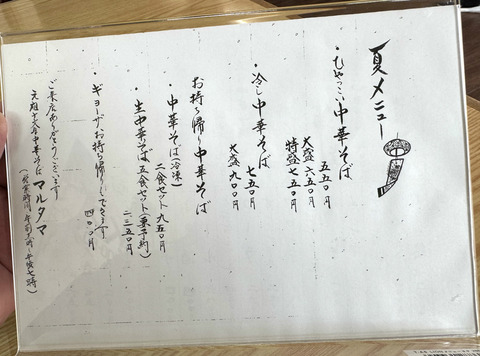 夏メニュー
・ひやっこい中華そば
五五〇円
大盛六五〇円
特盛七五〇円
・冷し中華そば
七五〇円
大盛九〇〇円
お持ち帰り中華そば
・中華そば(冷凍)
二食セット九五〇円
・生中華そば五食セット(要予約)
二二五〇円
・ギョーザお持ち帰りできます
四〇〇円
ご来店ありがとうございます
中華そば マルタマ
(営業時間 午前十一時～午後七時)